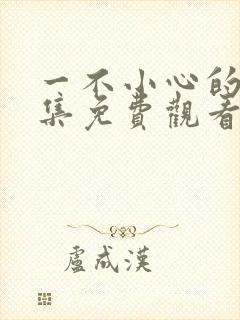 一不小心的
集免費觀看
盧成漢